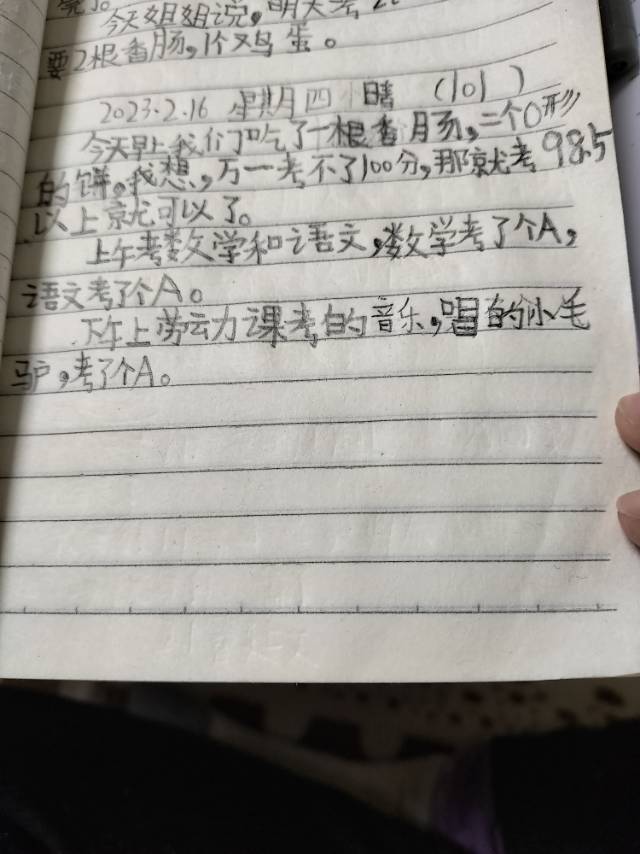 今天姐姐说，明天考
要2根香肠，1个鸡蛋。
2023.2.16 星期四 晴 （101）
今天早上我们吃了一根香肠，二个O形
的饼。我想，万一考不了100分，那就考98.5
以上就可以了。
上午考数学和语文，数学考了个A，
语文考了个A。
下午上劳动力课考的音乐，唱的小毛
驴，考了个A。